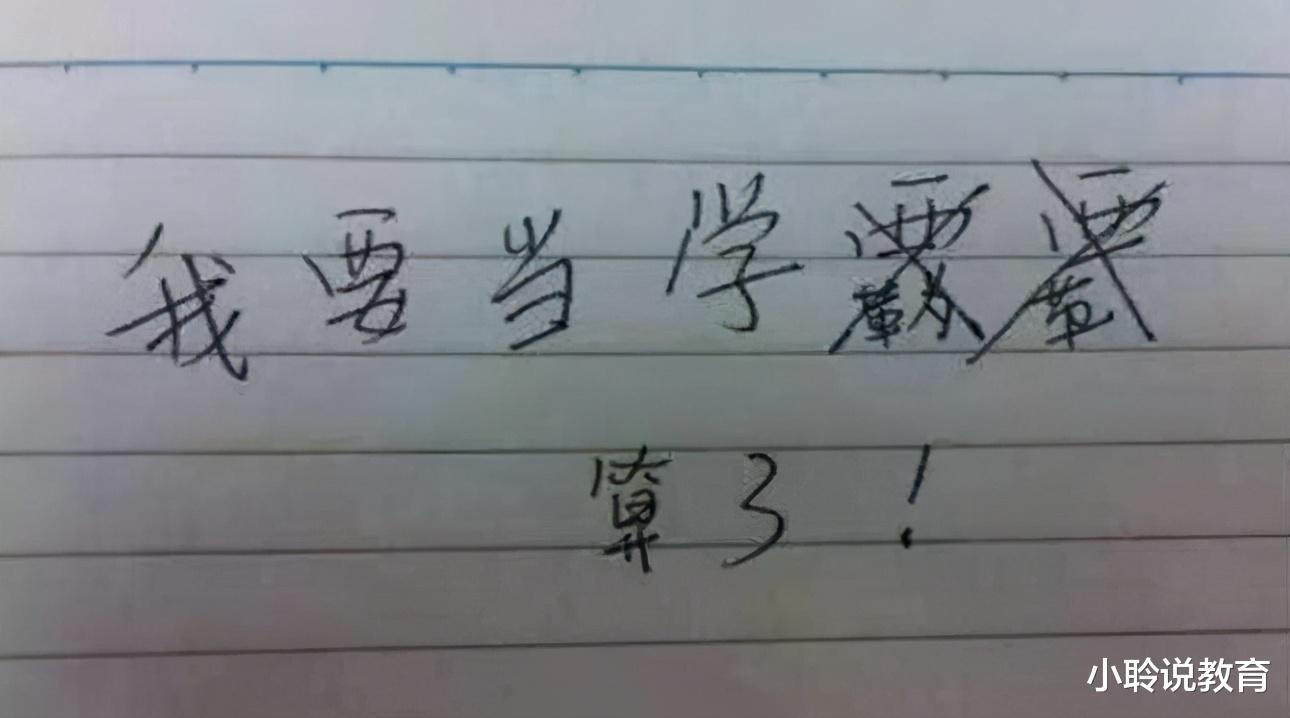 我要当学
算了！
小聆说教育